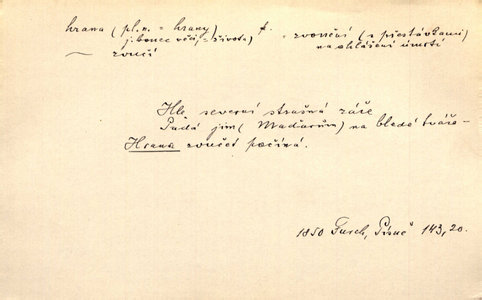 hrana (pl. n. = hrany) f. = zvonění (s přestávkami)
j. konec věci, = života) na ohlášení úmrtí
~ zvučí
Hle severní strašná záře
Padá jim (Maďarům) na bledé tváře –
Hrana zvučet počíná.
1850 Furch, Písně 143, 20.